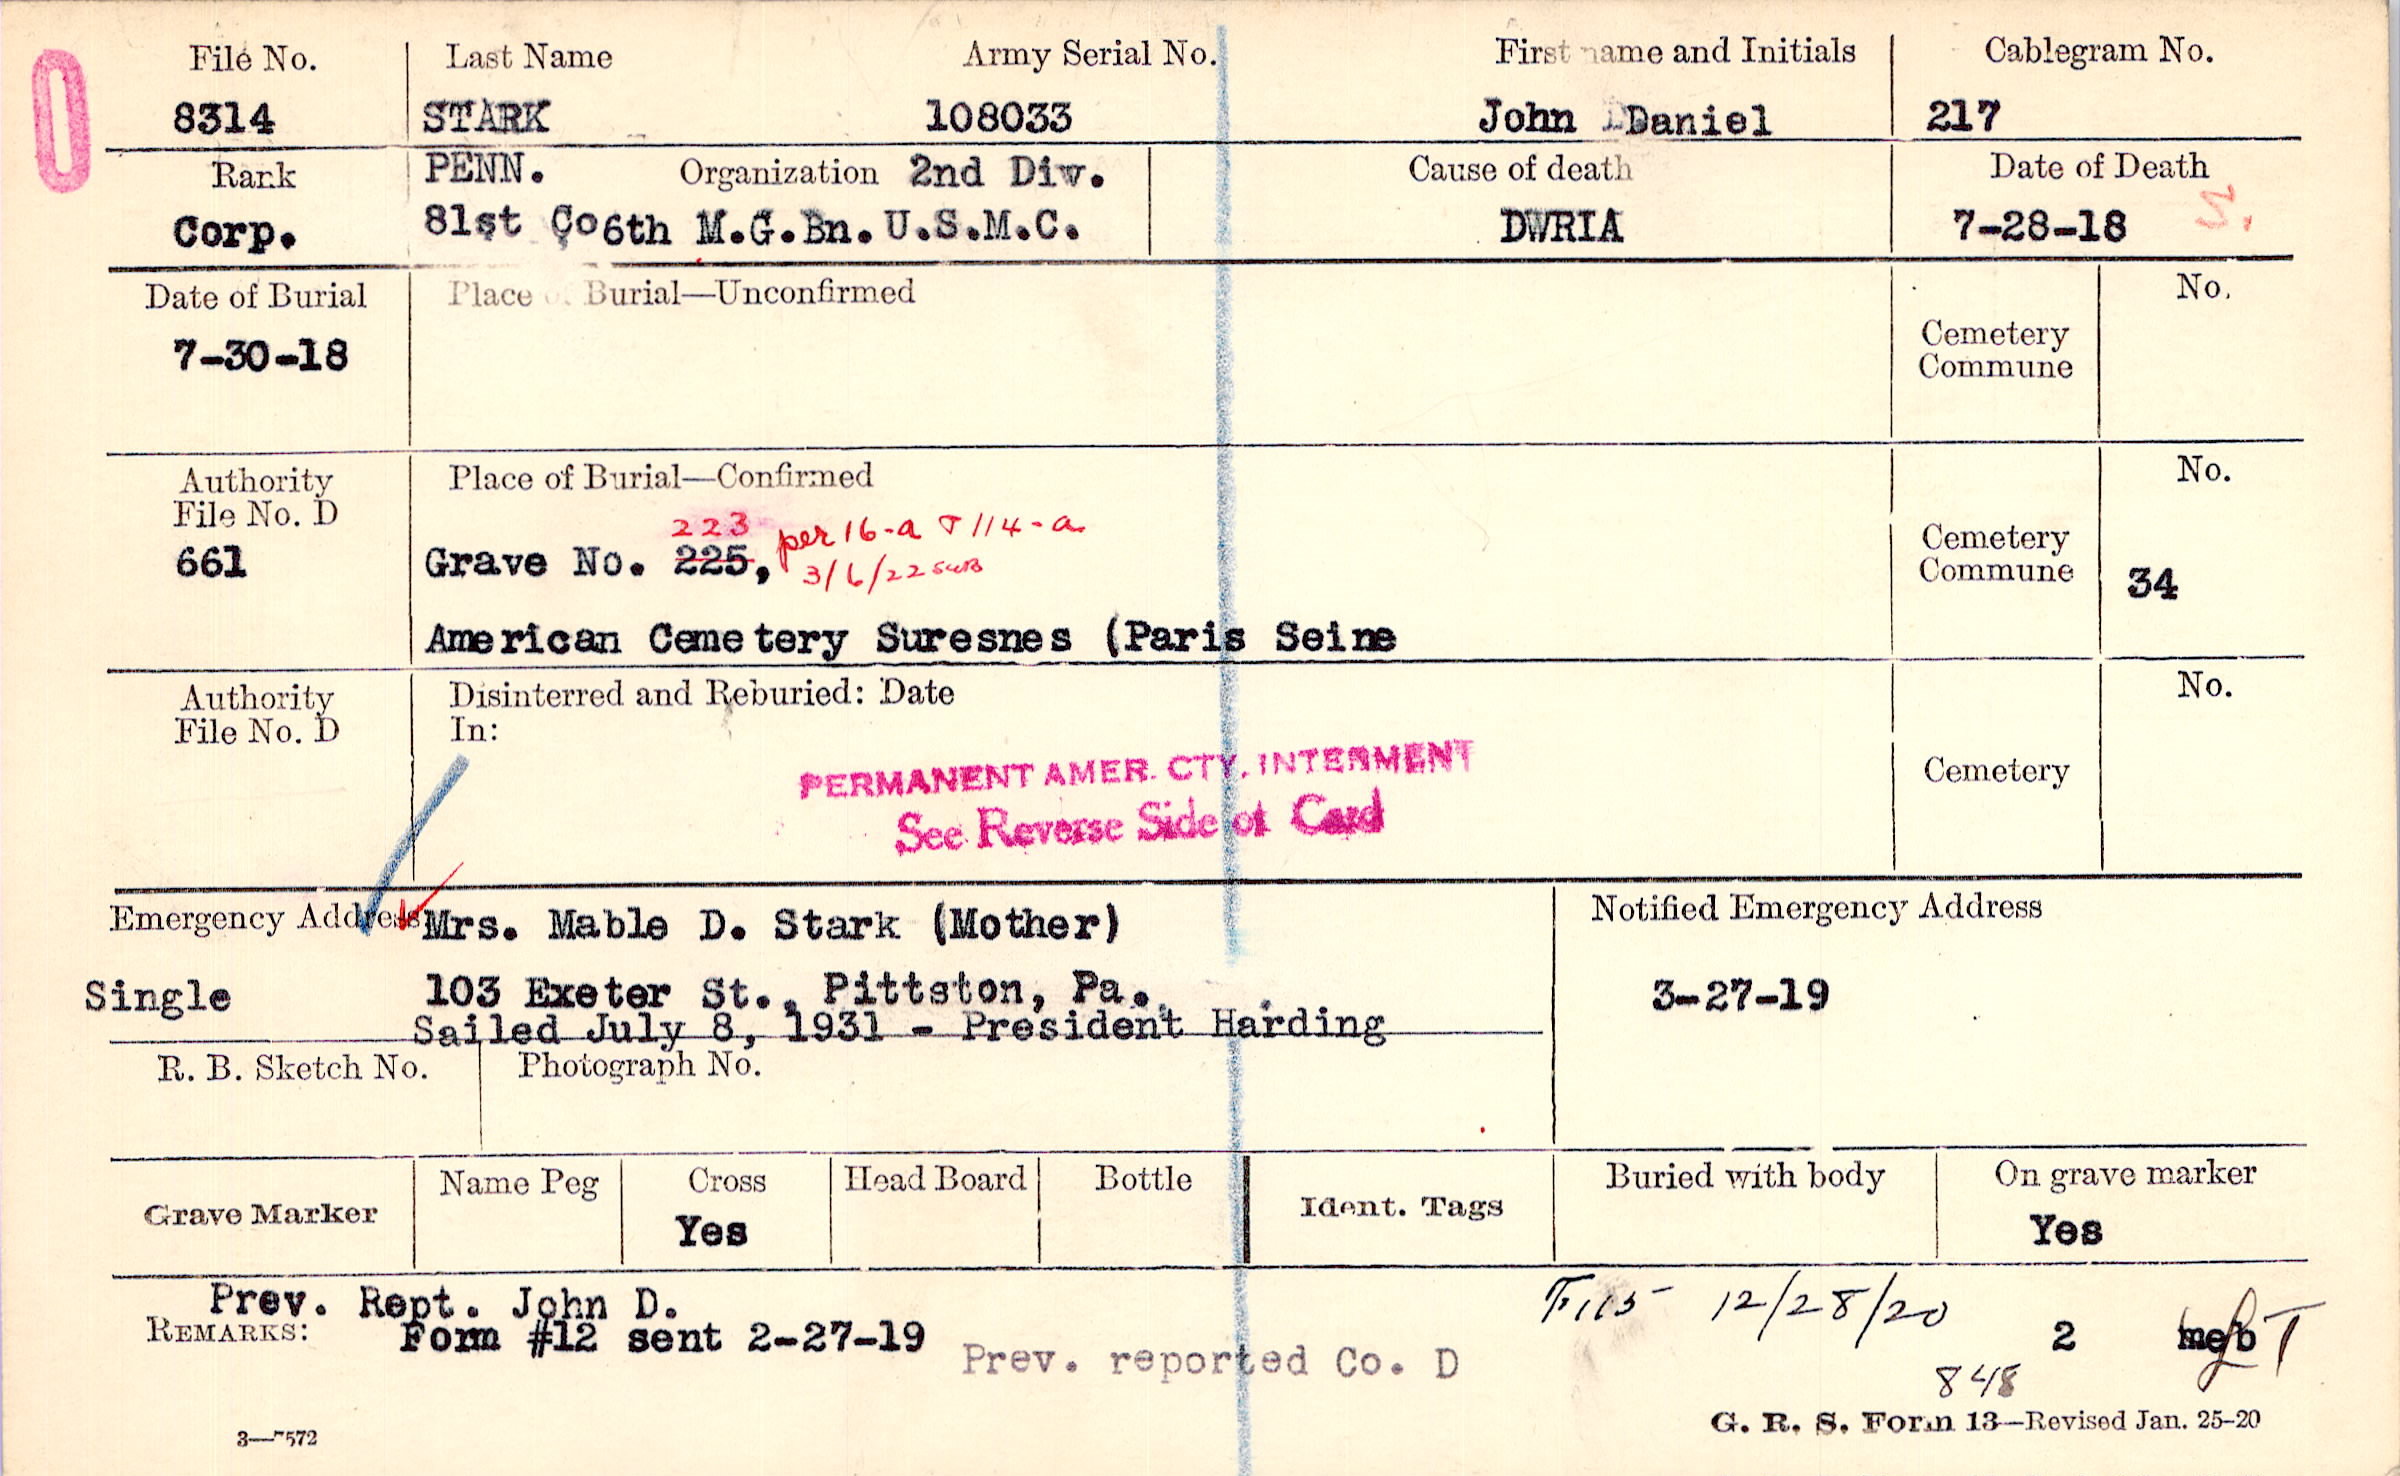 File No. Last Name Army Serial No. First name and Initials Cablegram No.
8314 STARK 108033 John Daniel 217
Rank PENN. Organization 2nd Div. Cause of death Date of Death
Corp. 81st Co 6th M.G.Bn. U.S.M.C. DWRIA 7-28-18 S.
Date of Burial Place of Burial—Unconfirmed No.
7-30-18 Cemetery
Commune
Authority Place of Burial—Confirmed No.
File No. D
223 per 16-a & 114-a
661 Grave No. 225, 3/6/22 Cemetery
Commune 34
American Cemetery Suresnes (Paris Seine
Authority Disinterred and Reburied: Date No.
File No. D In:
PERMANENT AMER. CTY. INTERMENT Cemetery
See Reverse Side of Card
Emergency Address Mrs. Mable D. Stark (Mother) Notified Emergency Address
Single 103 Exeter St., Pittston, Pa. 3-27-19
Sailed July 8, 1931 - President Harding
R. B. Sketch No. Photograph No.
Grave Marker Name Peg Cross Head Board Bottle Ident. Tags Buried with body On grave marker
Yes Yes
Prev. Rept. John D. 12/28/20
REMARKS: Form #12 sent 2-27-19 2 meb
Prev. reported Co. D
848
3—7572 G. R. S. Form 13—Revised Jan. 25-20